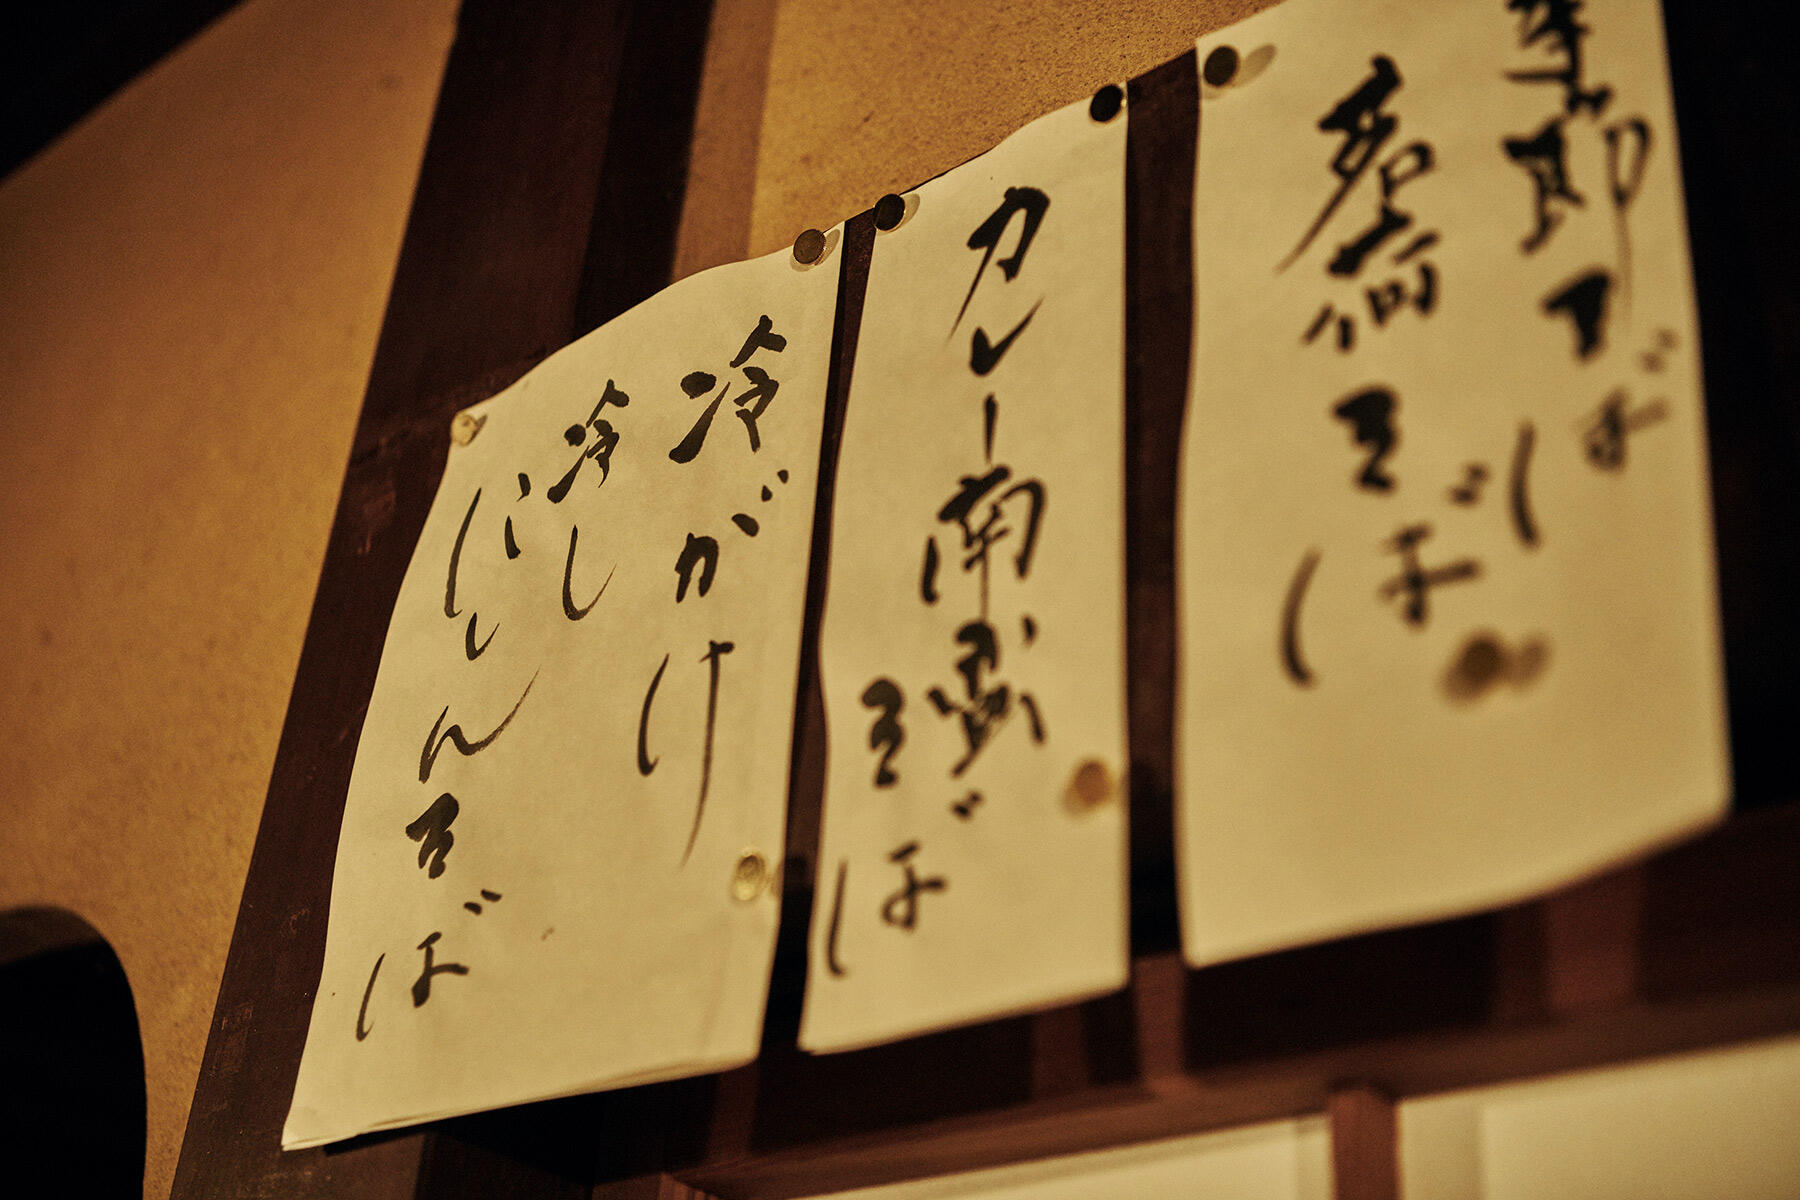 そば
茗荷そば
カレー南蛮
そば
冷がけ
冷し
にしんそば